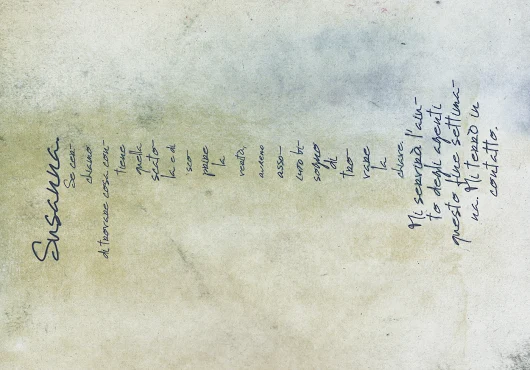 Susanna.
Se cer-
chiamo
di trovare cosa con-
tiene
quella
stato
la e di
sco
prire
la
verità,
avremo
asso-
luto bi-
sogno
di
tro
vare
la
chiave.
Mi servirà l'aiu-
to degli agenti
questo fine settima-
na. Mi terrò in
contatto.